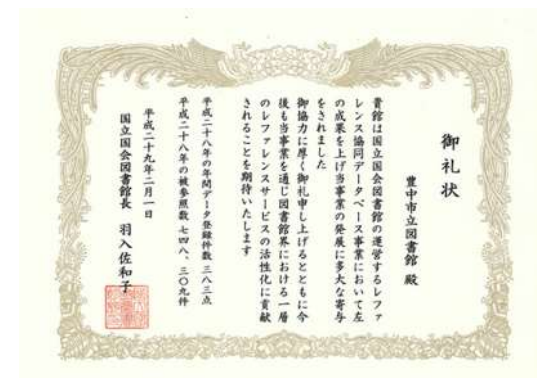 御礼状
豊中市立図書館 殿
貴館は国立国会図書館の運営するレファ
レンス協同データベース事業において左
の成果を上げ当事業の発展に多大な寄与
をされました
御協力に厚く御礼申し上げるとともに今
後も当事業を通じ図書館界における一層
のレファレンスサービスの活性化に貢献
されることを期待いたします
平成二十八年の年間データ登録件数 三八三点
平成二十八年の被参照数 七四八、三〇九件
平成二十九年二月一日
国立国会図書館長 羽入佐和子